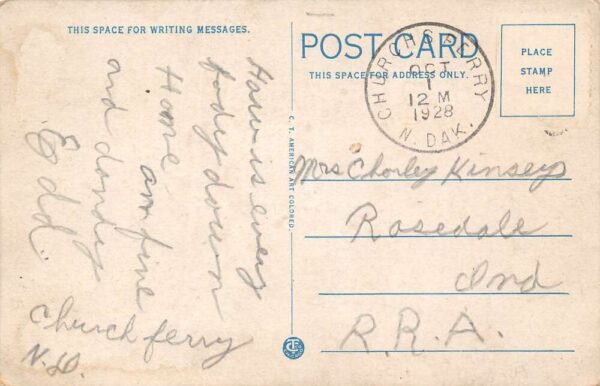 THIS SPACE FOR WRITING MESSAGES.
How is every
body down
Home
am fine
and dandy
Edd.
Church ferry
N.D.
C. T. AMERICAN ART COLORED.
POST CARD
THIS SPACE FOR ADDRESS ONLY.
CHURCHS FERRY
OCT
1
12 M
1928
N. DAK.
PLACE
STAMP
HERE
Mrs Chorley Kinsey
Rosedale
Ind
R.R.A.